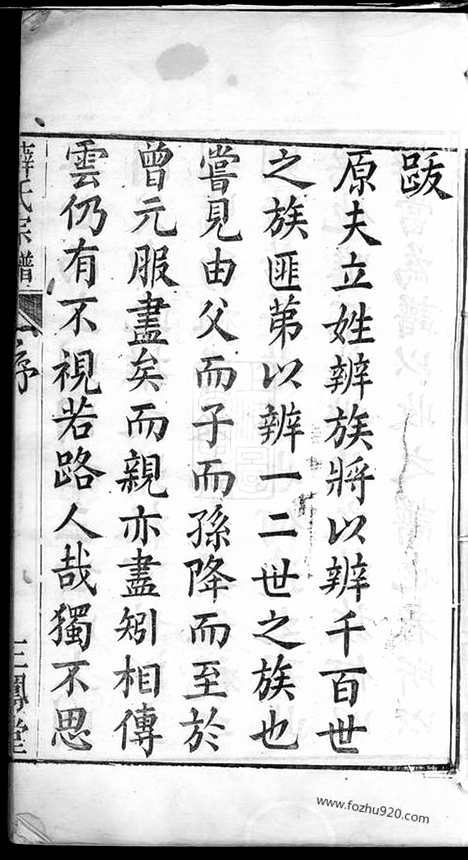 跋
原夫立姓辨族將以辨千百世
之族匪第以辨一二世之族也
嘗見由父而子而孫降而至於
曾元服盡矣而親亦盡矧相傳
雲仍有不視若路人哉獨不思
薛氏宗譜
序
三鳳堂
www.fozhu920.com